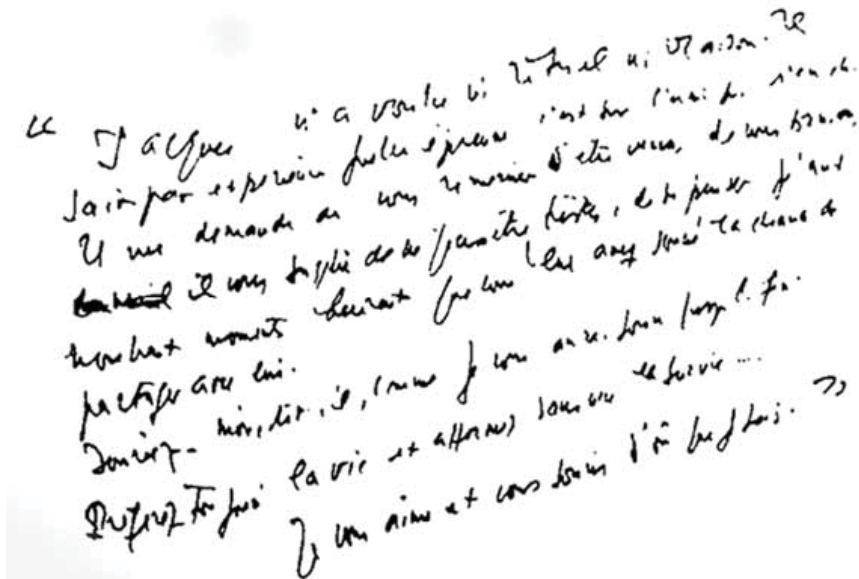 « Jacques n'a voulu ni rituel ni oraison. Il
sait par expérience quelle épreuve c'est pour l'ami qui s'en ch.
Il me demande de vous remercier d'être venus, de vous bénir,
il vous supplie de ne pas être tristes, de ne penser qu'aux
nombreux moments heureux que vous lui avez donné la chance de
partager avec lui.
Souriez-moi, dit-il, comme je vous aurai souri jusqu'à la fin.
Préférez toujours la vie et affirmez sans cesse la survie ...
Je vous aime et vous souris d'où que je sois. »